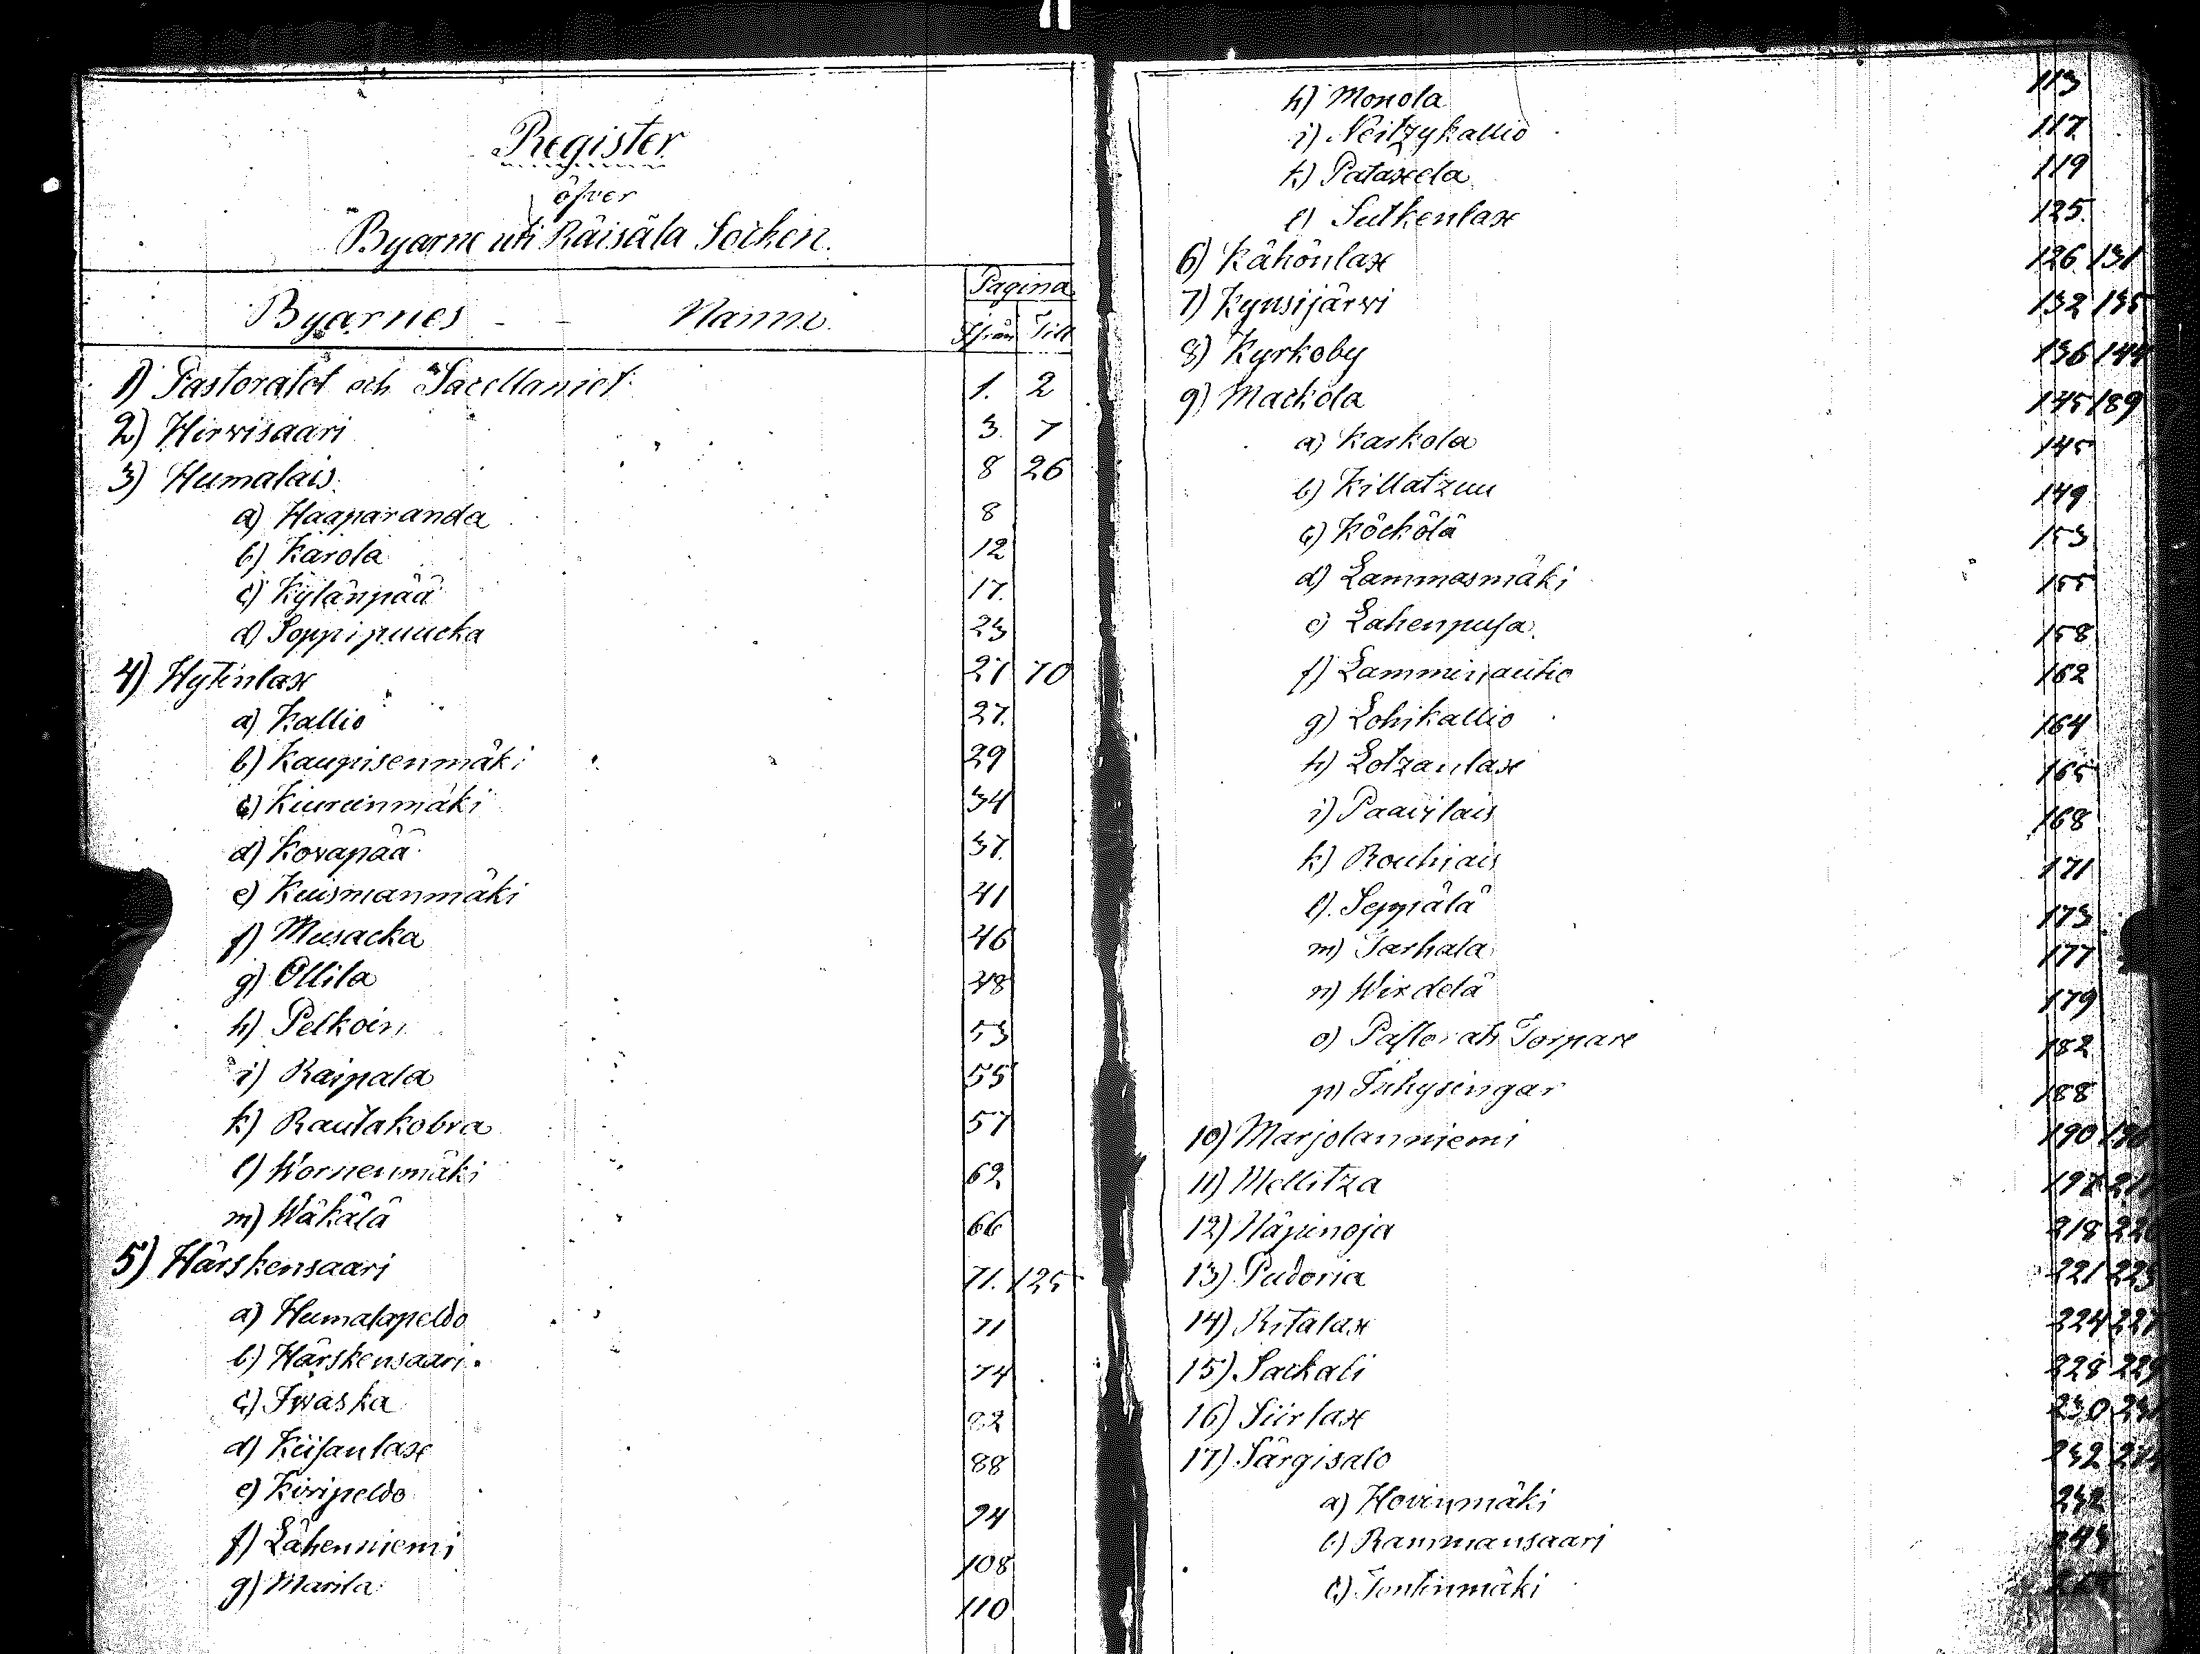 Register
öfver
Byarne uti Räisälä Socken.
Byarnes - - Namn. Pagina
Ifrån Till
1) Pastoratet och Sacellaniet 1. 2
2) Hirvisaari 3. 7
3) Humalais. 8 26
a) Haaparanda 8
b) Karola 12
c) Kylänpää 17.
d) Soppipuucka 23
4) Hytinlax 27 70
a) Kallio 27.
b) Kaupisenmäki 29
c) Kiuruinmäki 34
d) Kovapää 37.
e) Kuismanmäki 41
f) Musacka 46
g) Ollila 48
h) Pelkoin 53
i) Raipala 55
k) Rautakobra 57
l) Wornenmäki 62
m) Wäkälä 66
5) Härskensaari 71. 125
a) Humalapeldo 71
b) Härskensaari 74
c) Iwaska 82
d) Kiisanlax 88
e) Kiripeldo 94
f) Lähenniemi 108
g) Marila 110
h) Monola 113
i) Neitzykallio 117
k) Pataxela 119
l) Sutkenlax 125.
6) Kähönlax 126 131
7) Kynsijärvi 132 135
8) Kyrkoby 136 144
9) Mackola 145 189
a) Karkola 145
b) Killatzuu 149
c) Köckölä 153
d) Lammasmäki 155
e) Lahenpusa. 158
f) Lamminautio 162
g) Lohikallio 164
h) Lotzanlax 165
i) Paavilais 168
k) Rouhiais 171
l) Seppälä 173
m) Tarhala 177
n) Wirdelä 179
o) Pastorats Torpare 182
p) Inhysingar 188
10) Marjolanniemi 190
11) Mellitza 197
12) Näpinoja 218
13) Pudoria 221 223
14) Ritalax 224 227
15) Sackali 228 229
16) Siirlax 230 231
17) Särgisalo 232
a) Hovinmäki 232
b) Rammansaari 243
c) Tontinmäki